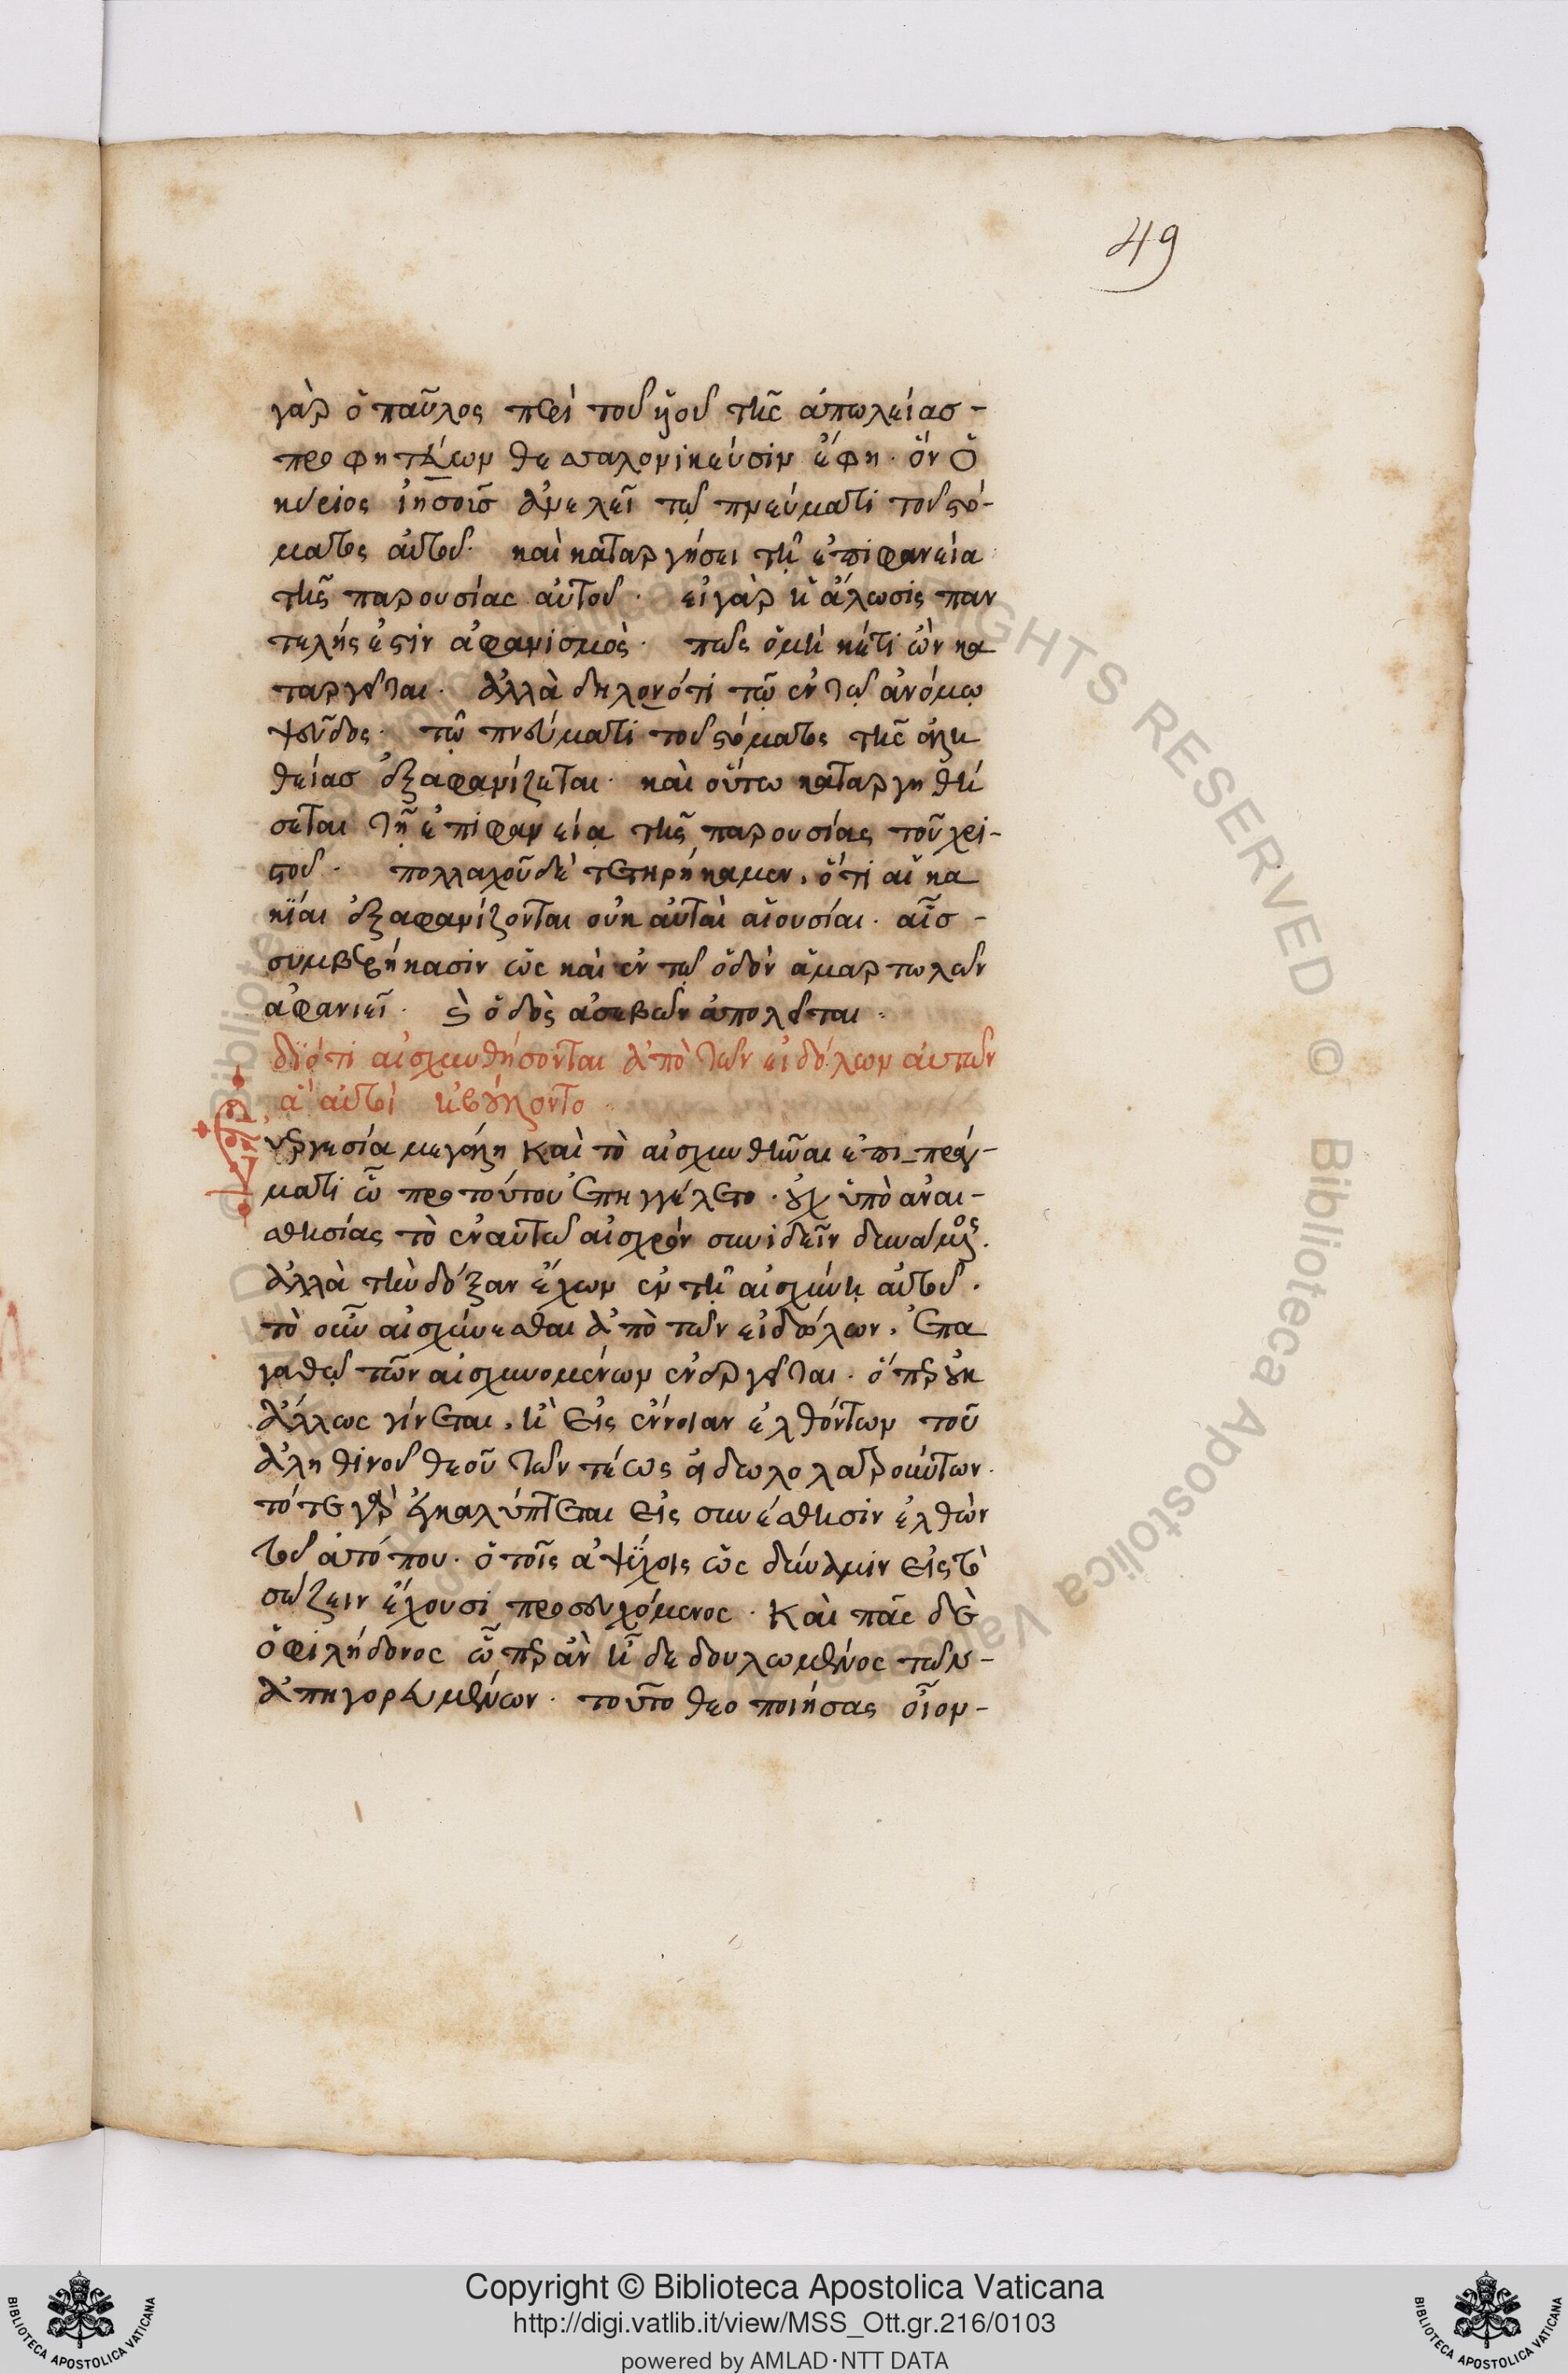 49
γὰρ ὁ παῦλος περὶ τοῦ υἱοῦ τῆς ἀπωλείασ -
προφητεύων θεσσαλονικεύσιν ἔφη · ὃν ὁ
κύριος ἰησοῦς ἀνελεῖ τῷ πνεύματι τοῦ στό-
ματος αὐτοῦ · καὶ καταργήσει τῇ ἐπιφανεία
τῆς παρουσίας αὐτοῦ · εἰ γὰρ ἡ ἅλωσις παν
τελής ἐστιν ἀφανισμὸς · πῶς ὁ μὴ κέτι ὢν κα
ταργεῖται · ἀλλὰ δηλονότι τῶ ἐν τῷ ἀνόμῳ
ψεῦδος · τῷ πνεύματι τοῦ στόματος τῆς ἀλη
θείασ ἐξαφανίζεται · καὶ οὕτω καταργηθή
σεται τῇ ἐπιφανείᾳ τῆς παρουσίας τοῦ χρι-
στοῦ · πολλαχοῦ δὲ τετηρήκαμεν, ὅτι αἱ κα
κίαι ἐξαφανίζονται οὐκ αὐταὶ αἱ οὐσίαι · αἷσ -
συμβεβήκασιν ὡς καὶ ἐν τῷ ὁδὸν ἁμαρτωλῶν
ἀφανιεῖ · καὶ ὁδὸς ἀσεβῶν ἀπολεῖται ·
διότι αἰσχυνθήσονται ἀπὸ τῶν εἰδώλων αὐτῶν
ἃ αὐτοὶ ἠβούλοντο ·
εὐεργεσία μεγάλη καὶ τὸ αἰσχυνθῆναι ἐπι πράγ-
ματι ὧ προ τούτου ἐπηγγέλετο · οὐχ ὑπὸ ἀναι-
σθησίας τὸ ἐν αὐτῶ αἰσχρὸν συνιδεῖν δυνάμενος ·
ἀλλὰ τὴν δόξαν ἔχων ἐν τῇ αἰσχύνῃ αὐτοῦ ·
τὸ οὖν αἰσχύνεσθαι ἀπὸ τῶν εἰδώλων, ἐπα
γαθῷ τῶν αἰσχυνομένων ἐνεργεῖται · ὅπερ οὐκ
ἄλλως γίνεται, ἢ εἰς ἔννοιαν ἐλθόντων τοῦ
ἀληθινοῦ θεοῦ τῶν τέως εἰδωλολατρούντων ·
τότε γὰρ ἐγκαλύπτεται εἰς συνέσθησιν ἐλθὼν
τοῦ ἀτόπου · ὁ τοῖς ἀψύχοις ὡς δύναμιν εἰς τὸ
σώζειν ἔχουσι προσευχόμενος · καὶ πᾶς δὲ
ὁ φιλήδονος ὧπερ ἂν ἦ δεδουλωμένος τῶν -
ἀπηγορευμένων · τοῦτο θεοποιήσας οἷον -
Copyright © Biblioteca Apostolica Vaticana
http://digi.vatlib.it/view/MSS_Ott.gr.216/0103
powered by AMLAD·NTT DATA
BIBLIOTECA APOSTOLICA VATICANA
BIBLIOTECA APOSTOLICA VATICANA